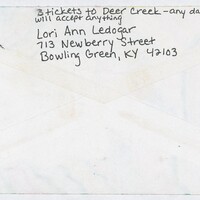 3 tickets to Deer Creek - any da
will accept anything
Lori Ann Ledogar
713 Newberry Street
Bowling Green, KY 42103